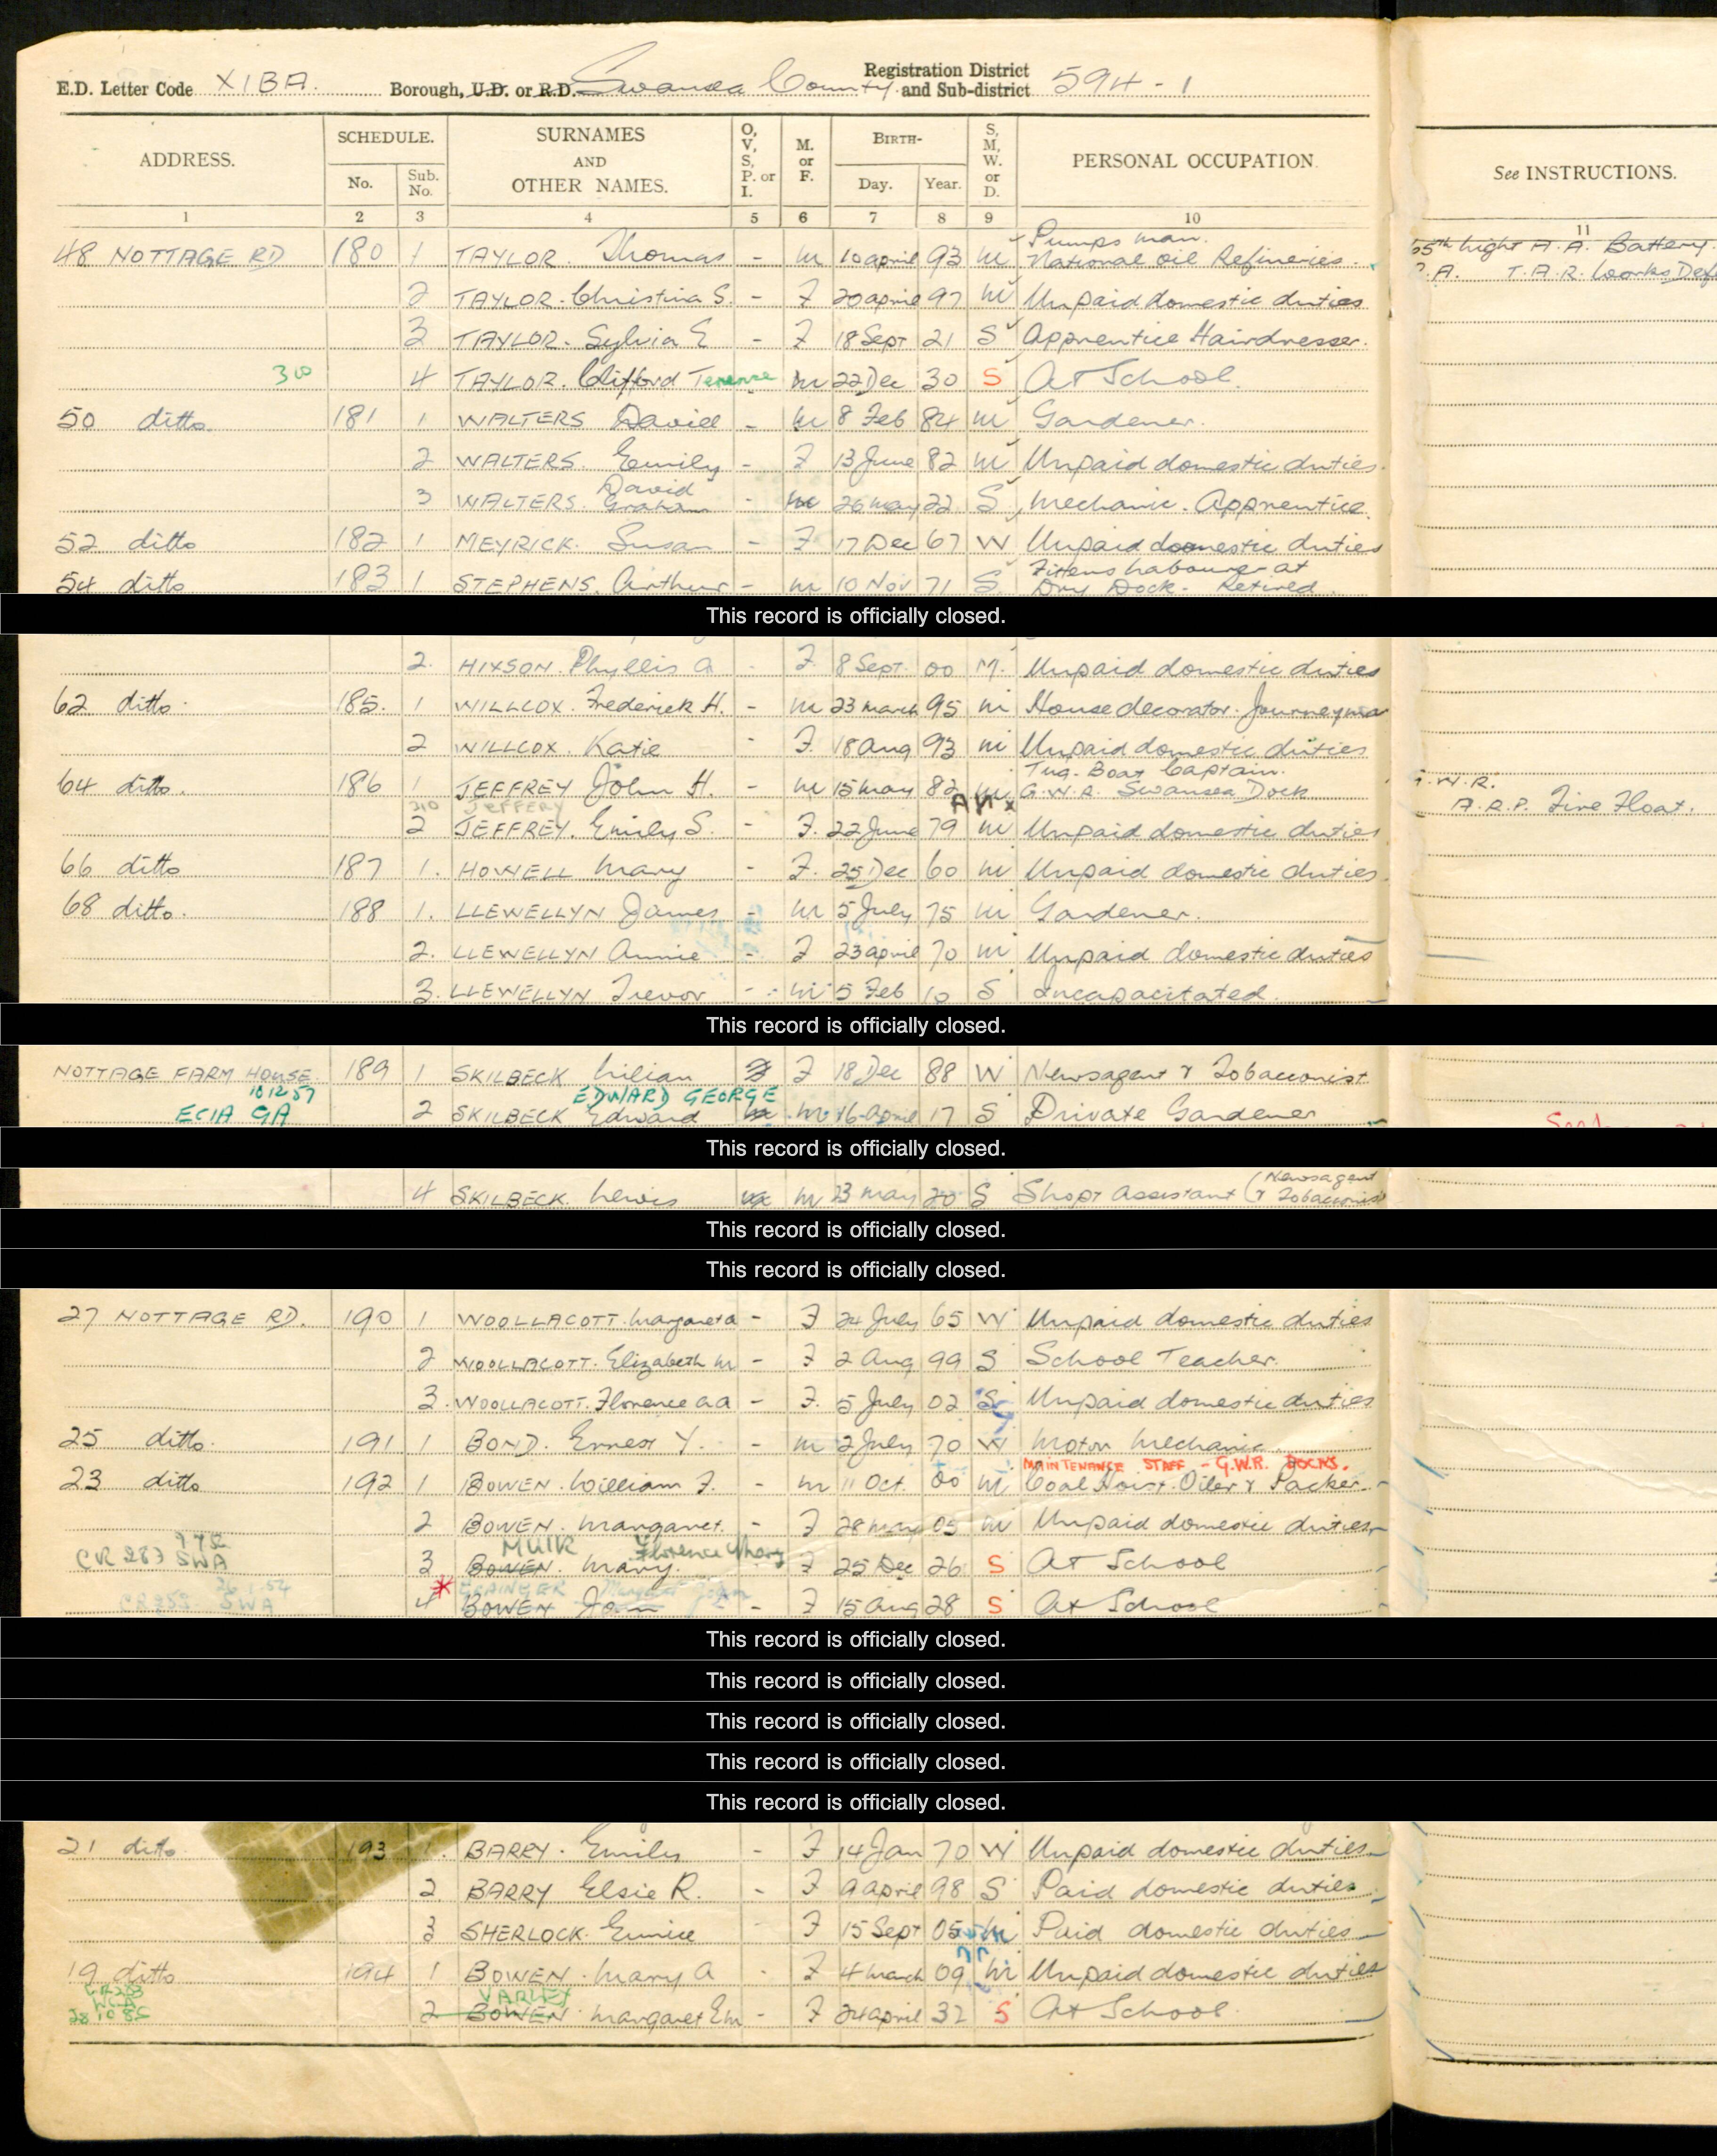 E.D. Letter Code XIBA. Borough, U.D. or R.D. Swansea County Registration District and Sub-district 594-1
ADDRESS. SCHEDULE. No. Sub. No. SURNAMES AND OTHER NAMES. O, V, S, P. or I. M. or F. BIRTH- Day. Year. S, M, W. or D. PERSONAL OCCUPATION. See INSTRUCTIONS.
1 2 3 4 5 6 7 8 9 10 11
48 NOTTAGE RD 180 1 TAYLOR. Thomas - M 10 April 93 M Pumps man. National Oil Refineries. 5th Light A.A. Battery. .A. T.A.R. Works Def
2 TAYLOR. Christina S. - F 20 April 97 M Unpaid domestic duties
3 TAYLOR. Sylvia E - F 18 Sept 21 S Apprentice Hairdresser.
30 4 TAYLOR. Clifford Terence M 22 Dec 30 S At School.
50 ditto. 181 1 WALTERS David - M 8 Feb 84 M Gardener.
2 WALTERS. Emily - F 13 June 82 M Unpaid domestic duties.
3 WALTERS. David Graham - M 26 May 22 S Mechanic. Apprentice.
52 ditto 182 1 MEYRICK. Susan - F 17 Dec 67 W Unpaid domestic duties
54 ditto 183 1 STEPHENS. Arthur - M 10 Nov 71 S Fitters Labourer at Dry Dock - Retired.
This record is officially closed.
2. HIXSON. Phyllis A - F. 8 Sept. 00 M. Unpaid domestic duties
62 ditto. 185. 1 WILLCOX. Frederick H. - M 23 March 95 M House decorator. Journeyma
2 WILLCOX. Katie - F. 18 Aug 93 M Unpaid domestic duties
64 ditto. 186 1 JEFFREY John H. - M 15 May 82 M Tug. Boat Captain. G.W.R. Swansea Dock .W.R. A.R.P. Fire Float.
JEFFERY
2 JEFFREY. Emily S. - F. 22 June 79 M Unpaid domestic duties
66 ditto 187 1. HOWELL Mary - F. 25 Dec 60 M Unpaid domestic duties.
68 ditto. 188 1. LLEWELLYN James - M 5 July 75 M Gardener.
2. LLEWELLYN Annie - F 23 April 70 M Unpaid domestic duties
3. LLEWELLYN Trevor - M 5 Feb 10 S Incapacitated.
This record is officially closed.
NOTTAGE FARM HOUSE 189 1 SKILBECK Lilian F 18 Dec 88 W Newsagent & Tobacconist
10 12 57 EDWARD GEORGE
ECIA GA 2 SKILBECK Edward M 16 April 17 S Private Gardener
This record is officially closed.
4 SKILBECK. Lewis M 23 May 20 S Shop Assistant (Newsagent & Tobacconist
This record is officially closed.
This record is officially closed.
27 NOTTAGE RD. 190 1 WOOLLACOTT. Margaret A - F 24 July 65 W Unpaid domestic duties
2 WOOLLACOTT. Elizabeth M - F 2 Aug 99 S School Teacher.
3. WOOLLACOTT. Florence A A - F. 5 July 02 S Unpaid domestic duties
25 ditto. 191 1 BOND. Ernest Y. - M 2 July 70 W Motor Mechanic
MAINTENANCE STAFF - G.W.R. DOCKS.
23 ditto 192 1 BOWEN. William F. - M 11 Oct. 00 M Coal Hoist. Oiler & Packer.
2 BOWEN. Margaret. - F 28 May 05 M Unpaid domestic duties
MUIR Florence Mary
CR 283 SWA 3 BOWEN. Mary. F 25 Dec 26 S At School
26.1.54 Margaret Joan
SWA 4 BOWEN Joan - F 15 Aug 28 S At School
This record is officially closed.
This record is officially closed.
This record is officially closed.
This record is officially closed.
This record is officially closed.
21 ditto. 193 1. BARRY. Emily - F 14 Jan 70 W Unpaid domestic duties
2 BARRY Elsie R. - F 9 April 98 S Paid domestic duties
3 SHERLOCK. Eunice - F 15 Sept 05 M Paid domestic duties
19 ditto 194 1 BOWEN. Mary A - F 4 March 09 M Unpaid domestic duties
CR283 VARLEY
2 BOWEN Margaret E M - F 24 April 32 S At School.
28 10 85